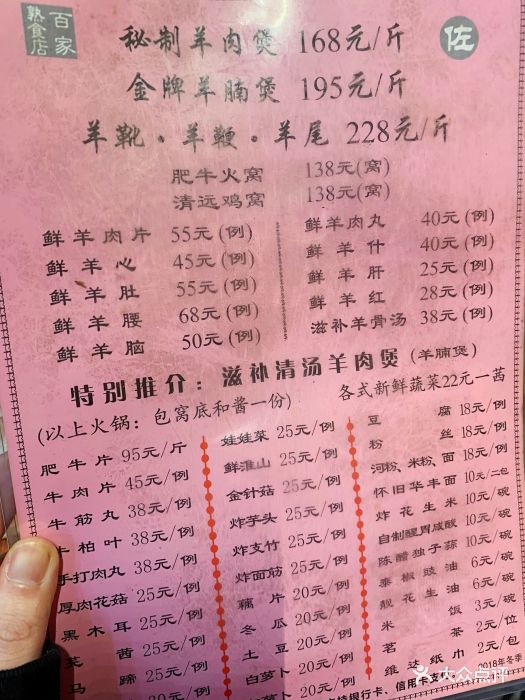 百家
熟食店
佐
秘制羊肉煲 168元/斤
金牌羊腩煲 195元/斤
羊靴·羊鞭·羊尾 228元/斤
肥牛火窝 138元(窝)
清远鸡窝 138元(窝)
鲜羊肉片 55元(例)
鲜羊心 45元(例)
鲜羊肚 55元(例)
鲜羊腰 68元(例)
鲜羊脑 50元(例)
鲜羊肉丸 40元(例)
鲜羊什 40元(例)
鲜羊肝 25元(例)
鲜羊红 28元(例)
滋补羊骨汤 38元(例)
特别推介：滋补清汤羊肉煲(羊腩煲)
(以上火锅：包窝底和酱一份)
各式新鲜蔬菜22元一茜
肥牛片 95元/斤
牛肉片 45元/例
牛筋丸 38元/例
牛柏叶 38元/例
手打肉丸 38元/例
厚肉花菇 25元/例
黑木耳 25元/例
茜 25元/例
马蹄 25元/例
娃娃菜 25元/例
鲜淮山 25元/例
金针菇 25元/例
炸芋头 25元/例
炸支竹 25元/例
炸面筋 25元/例
藕片 20元/例
冬瓜 20元/例
土豆 20元/例
白萝卜 20元/例
豆腐 18元/例
粉丝 18元/例
河粉、米粉、面 18元/例
怀旧华丰面 10元/二包
炸花生米 10元/碗
自制醒胃咸酸 10元/碗
陈醋独子蒜 10元/碗
泰椒豉油 6元/碗
靓花生油 6元/碗
米饭 3元/碗
茗茶 2元/位
维达纸巾 2元/包
银行卡、信用卡支
2018年冬季
大众点评